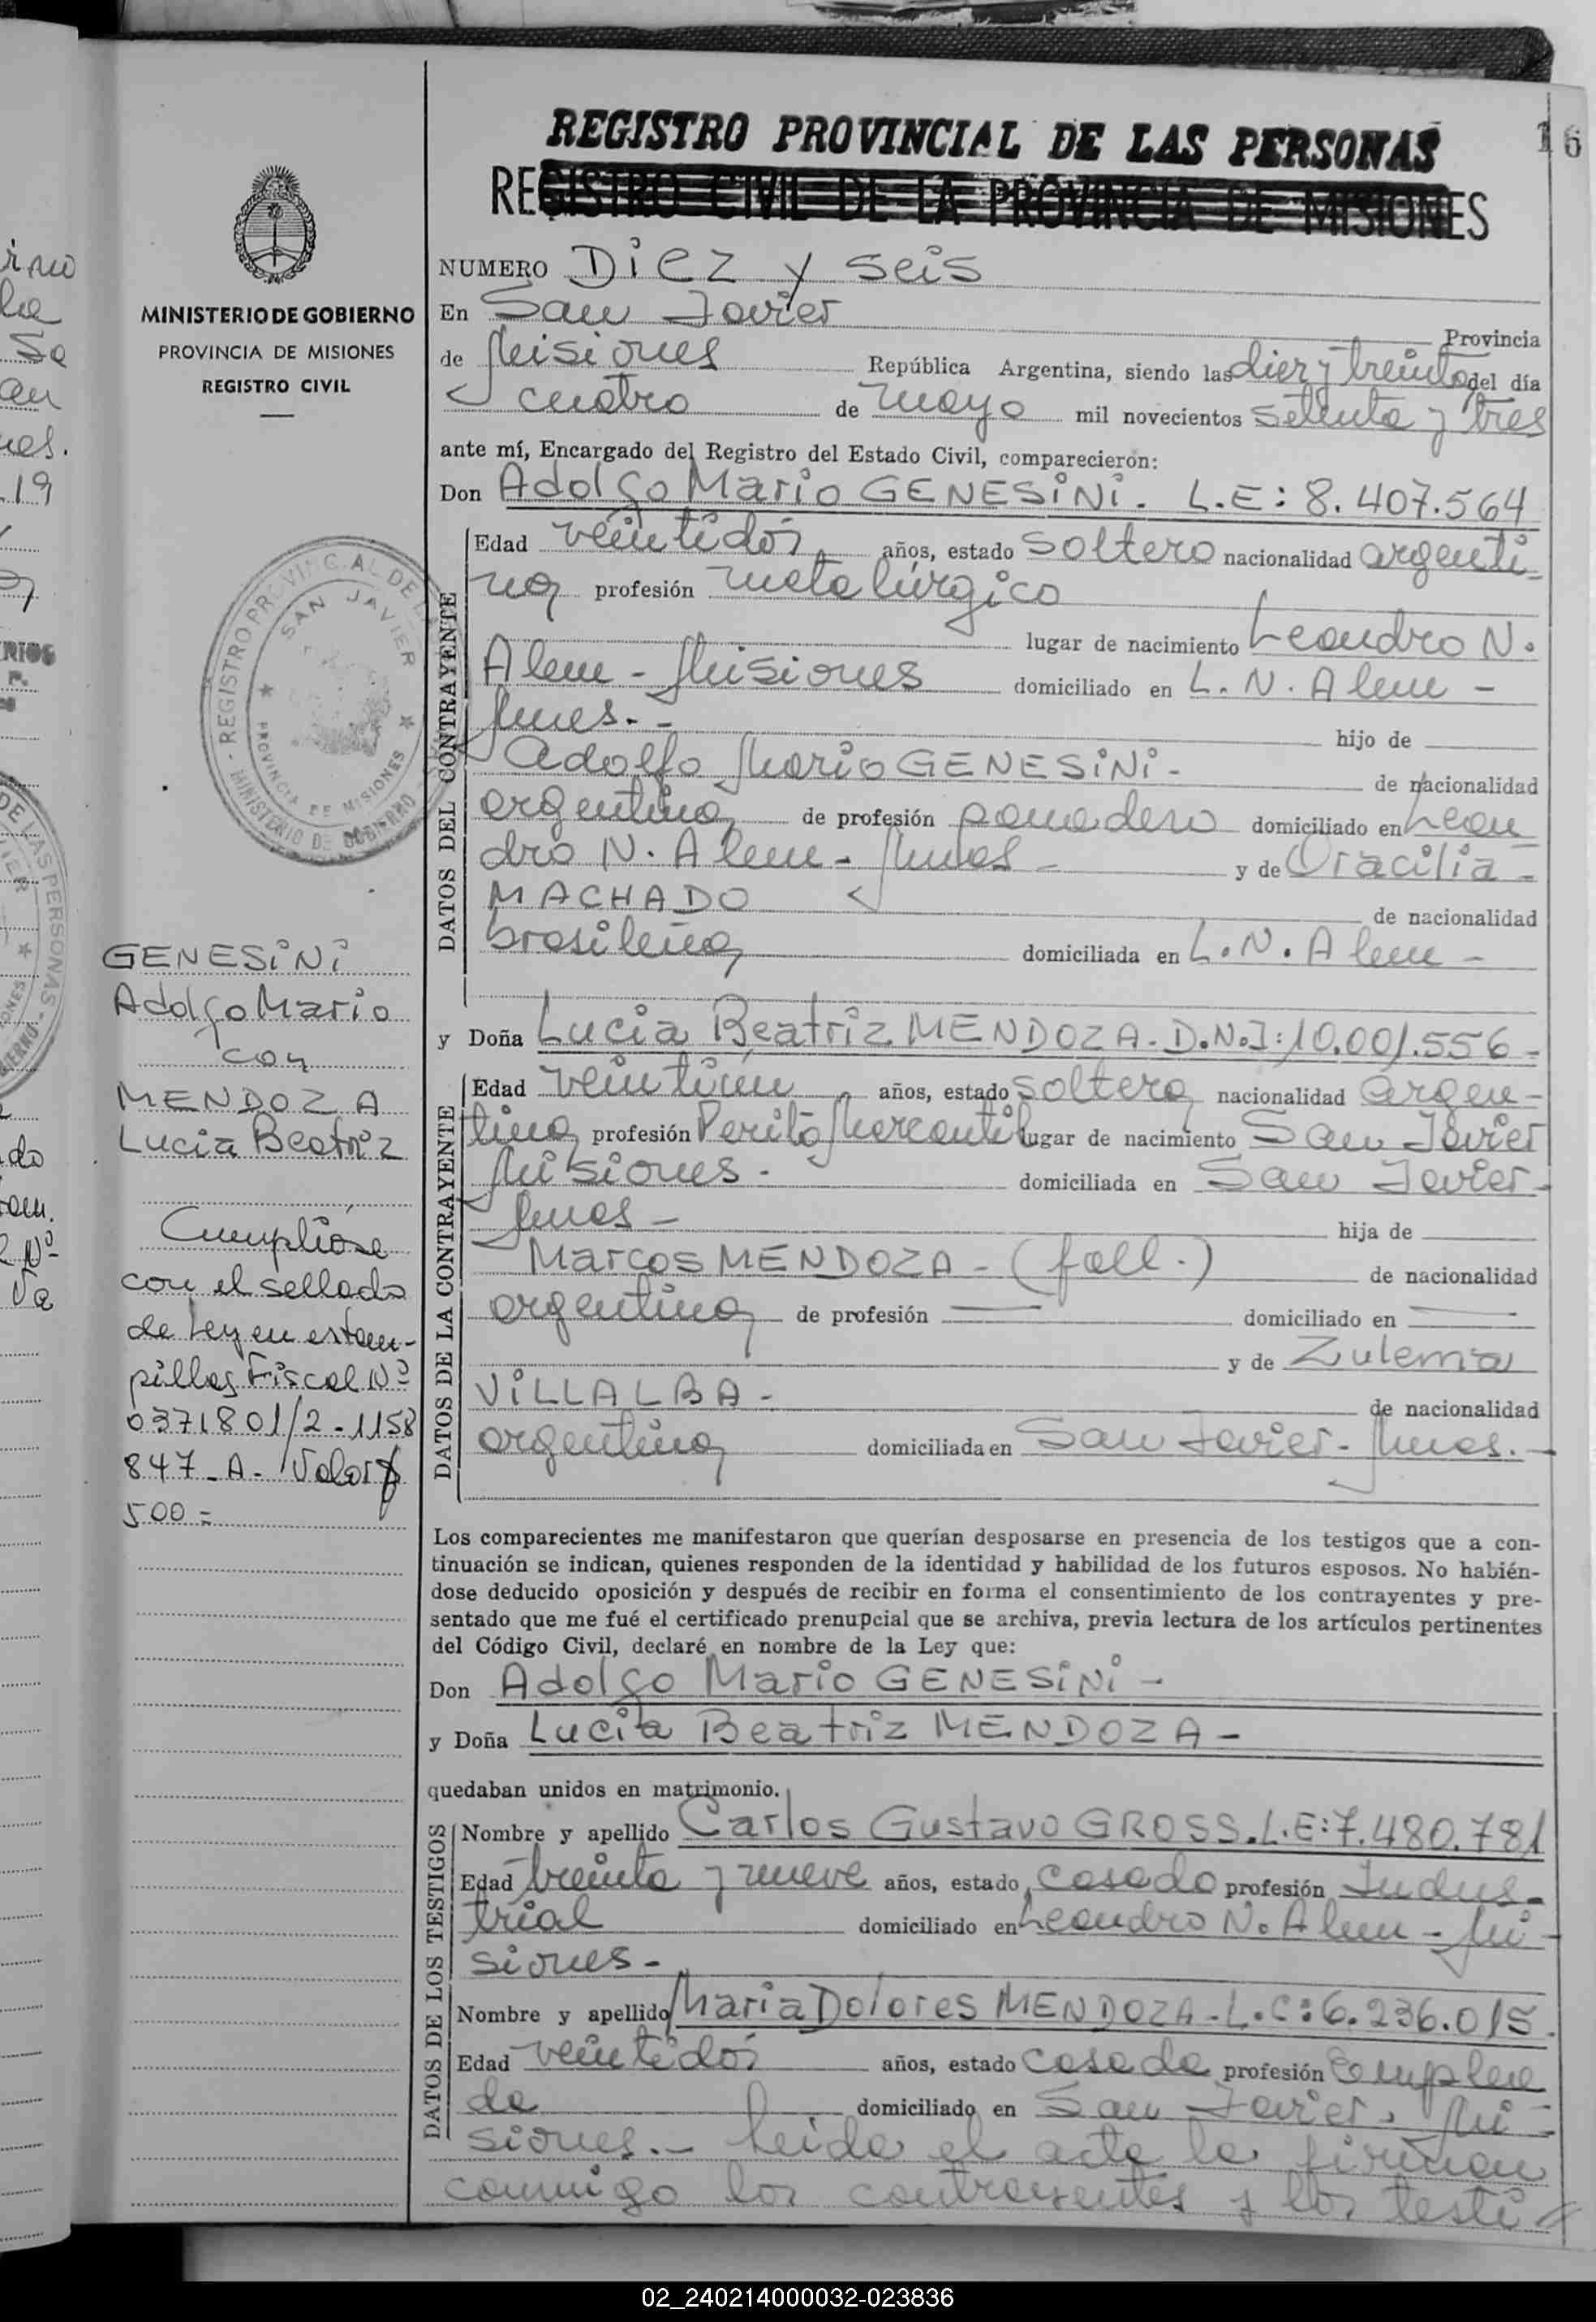 REGISTRO PROVINCIAL DE LAS PERSONAS
16
REGISTRO CIVIL DE LA PROVINCIA DE MISIONES
MINISTERIO DE GOBIERNO
PROVINCIA DE MISIONES
REGISTRO CIVIL
NUMERO Diez y seis
En San Javier
Provincia
de Misiones República Argentina, siendo las diez y treinta del día
cuatro de mayo mil novecientos setenta y tres
ante mí, Encargado del Registro del Estado Civil, comparecieron:
Don Adolfo Mario GENESiNi. L.E: 8.407.564
DATOS DEL CONTRAYENTE
Edad veintidós años, estado soltero nacionalidad argenti-
na profesión metalúrgico
lugar de nacimiento Leandro N.
Alem - Misiones domiciliado en L. N. Alem -
Mnes. - hijo de
Adolfo Mario GENESiNi - de nacionalidad
argentina de profesión panadero domiciliado en Lean
dro N. Alem - Mnes - y de Oracilia -
MACHADO de nacionalidad
brasileña domiciliada en L. N. Alem -
y Doña Lucia Beatriz MENDOZA - D.N.I: 10.001.556 -
DATOS DE LA CONTRAYENTE
Edad veintiun años, estado soltera nacionalidad argen-
tina profesión Perito Mercantil lugar de nacimiento San Javier
Misiones - domiciliada en San Javier -
Mnes - hija de
Marcos MENDOZA - (fall.) de nacionalidad
argentina de profesión domiciliado en
y de Zulema
ViLLALBA - de nacionalidad
argentina domiciliada en San Javier - Mnes. -
Los comparecientes me manifestaron que querían desposarse en presencia de los testigos que a con-
tinuación se indican, quienes responden de la identidad y habilidad de los futuros esposos. No habién-
dose deducido oposición y después de recibir en forma el consentimiento de los contrayentes y pre-
sentado que me fué el certificado prenupcial que se archiva, previa lectura de los artículos pertinentes
del Código Civil, declaré en nombre de la Ley que:
Don Adolfo Mario GENESiNi -
y Doña Lucia Beatriz MENDOZA -
quedaban unidos en matrimonio.
DATOS DE LOS TESTIGOS
Nombre y apellido Carlos Gustavo GROSS. L.E: 7.480.781
Edad treinta y nueve años, estado casado profesión Indus-
trial domiciliado en Leandro N. Alem - Mi-
siones -
Nombre y apellido Maria Dolores MENDOZA - L.C: 6.236.015.
Edad veintidós años, estado casada profesión Emplea
da domiciliado en San Javier, Mi-
siones. - Leida el acta la firman
conmigo los contrayentes y los testi
REGISTRO PROVINCIAL DE
SAN JAVIER
PROVINCIA DE MISIONES
MINISTERIO DE GOBIERNO
GENESiNi
Adolfo Mario
con
MENDOZA
Lucia Beatriz
Cumplióse
con el sellado
de Ley en estam-
pillas Fiscal Nº
0371801/2-1158
847-A- Valor $
500=
02_240214000032-023836